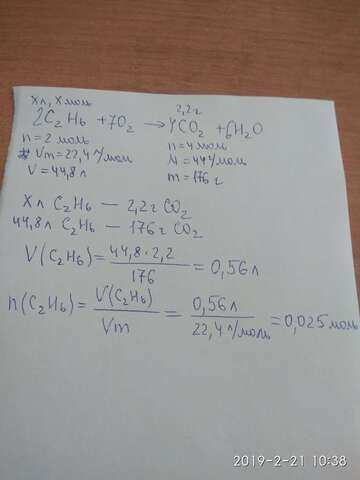 Xл, Xмоль
2,2г
2C₂H₆ + 7O₂ → 4CO₂ + 6H₂O
n = 2 моль
n = 4 моль
Vm = 22,4 л/моль
M = 44 г/моль
V = 44,8 л
m = 176 г
Xл C₂H₆ — 2,2г CO₂
44,8л C₂H₆ — 176г CO₂
V(C₂H₆) = 44,8·2,2 / 176 = 0,56л
n(C₂H₆) = V(C₂H₆) / Vm = 0,56л / 22,4 л/моль = 0,025 моль
2019-2-21 10:38